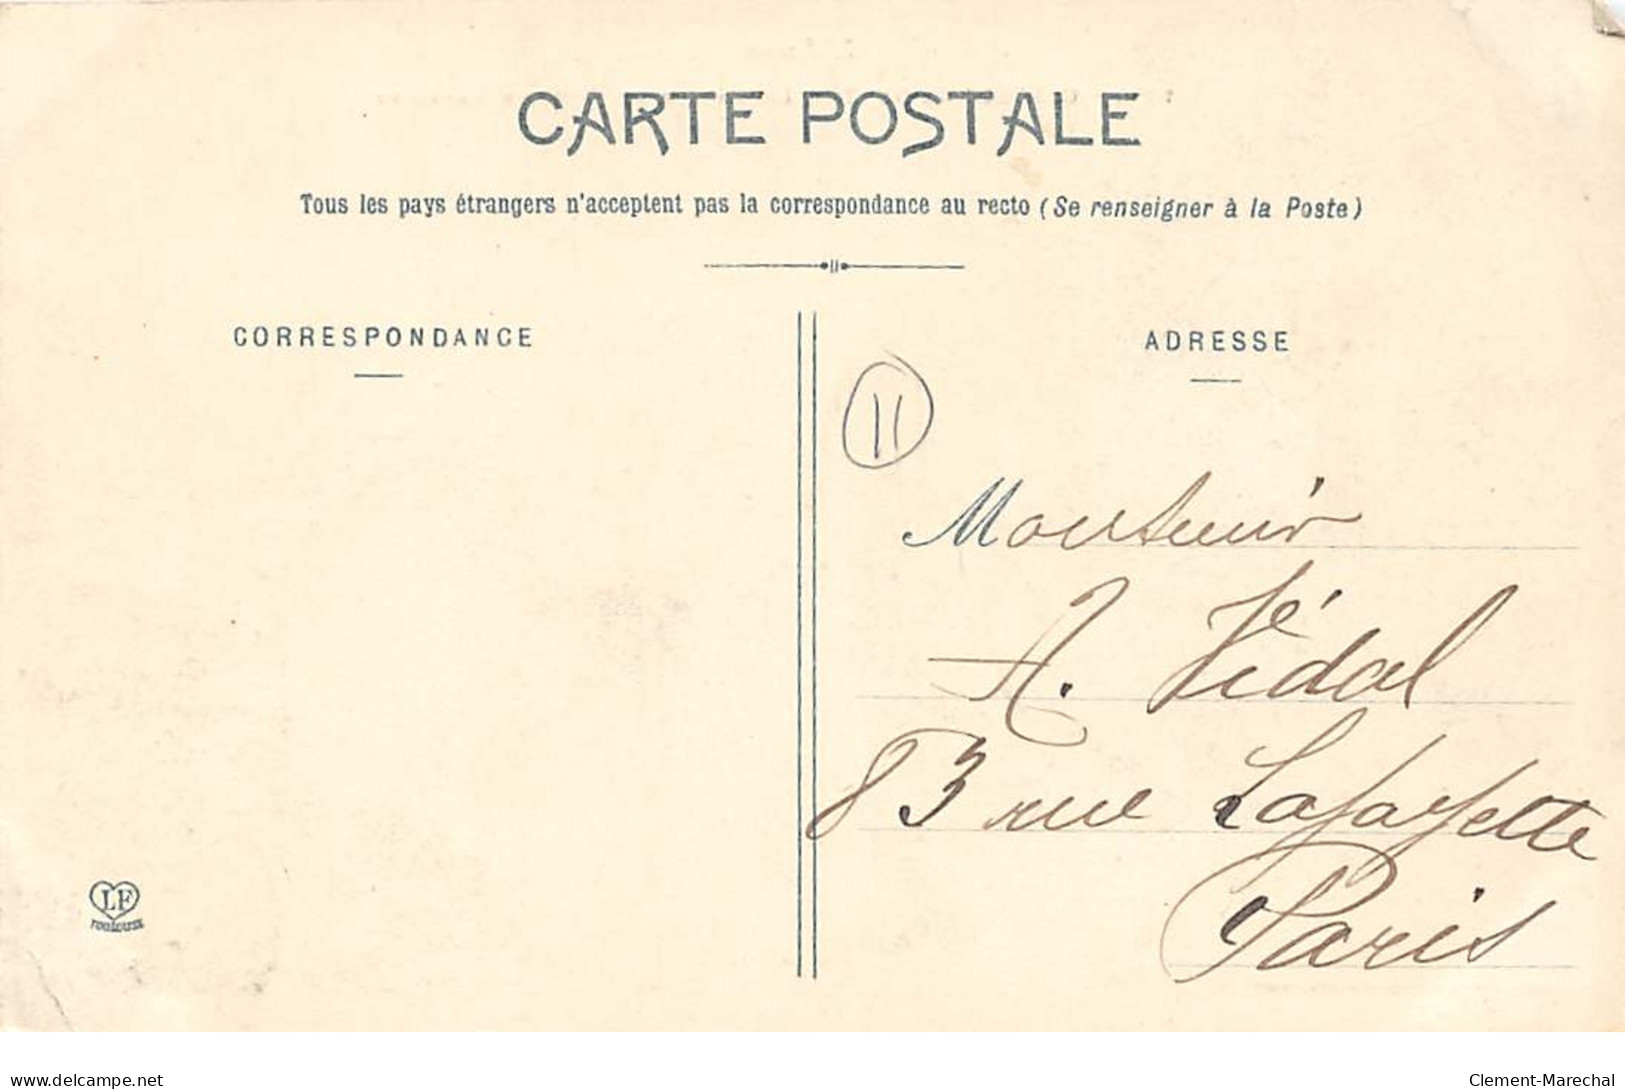 CARTE POSTALE
Tous les pays étrangers n'acceptent pas la correspondance au recto (Se renseigner à la Poste)
CORRESPONDANCE
ADRESSE
11
Monsieur
A. Vidal
83 rue Lafayette
Paris
LF
TOULOUSE
delcampe.net
Clement-Marechal